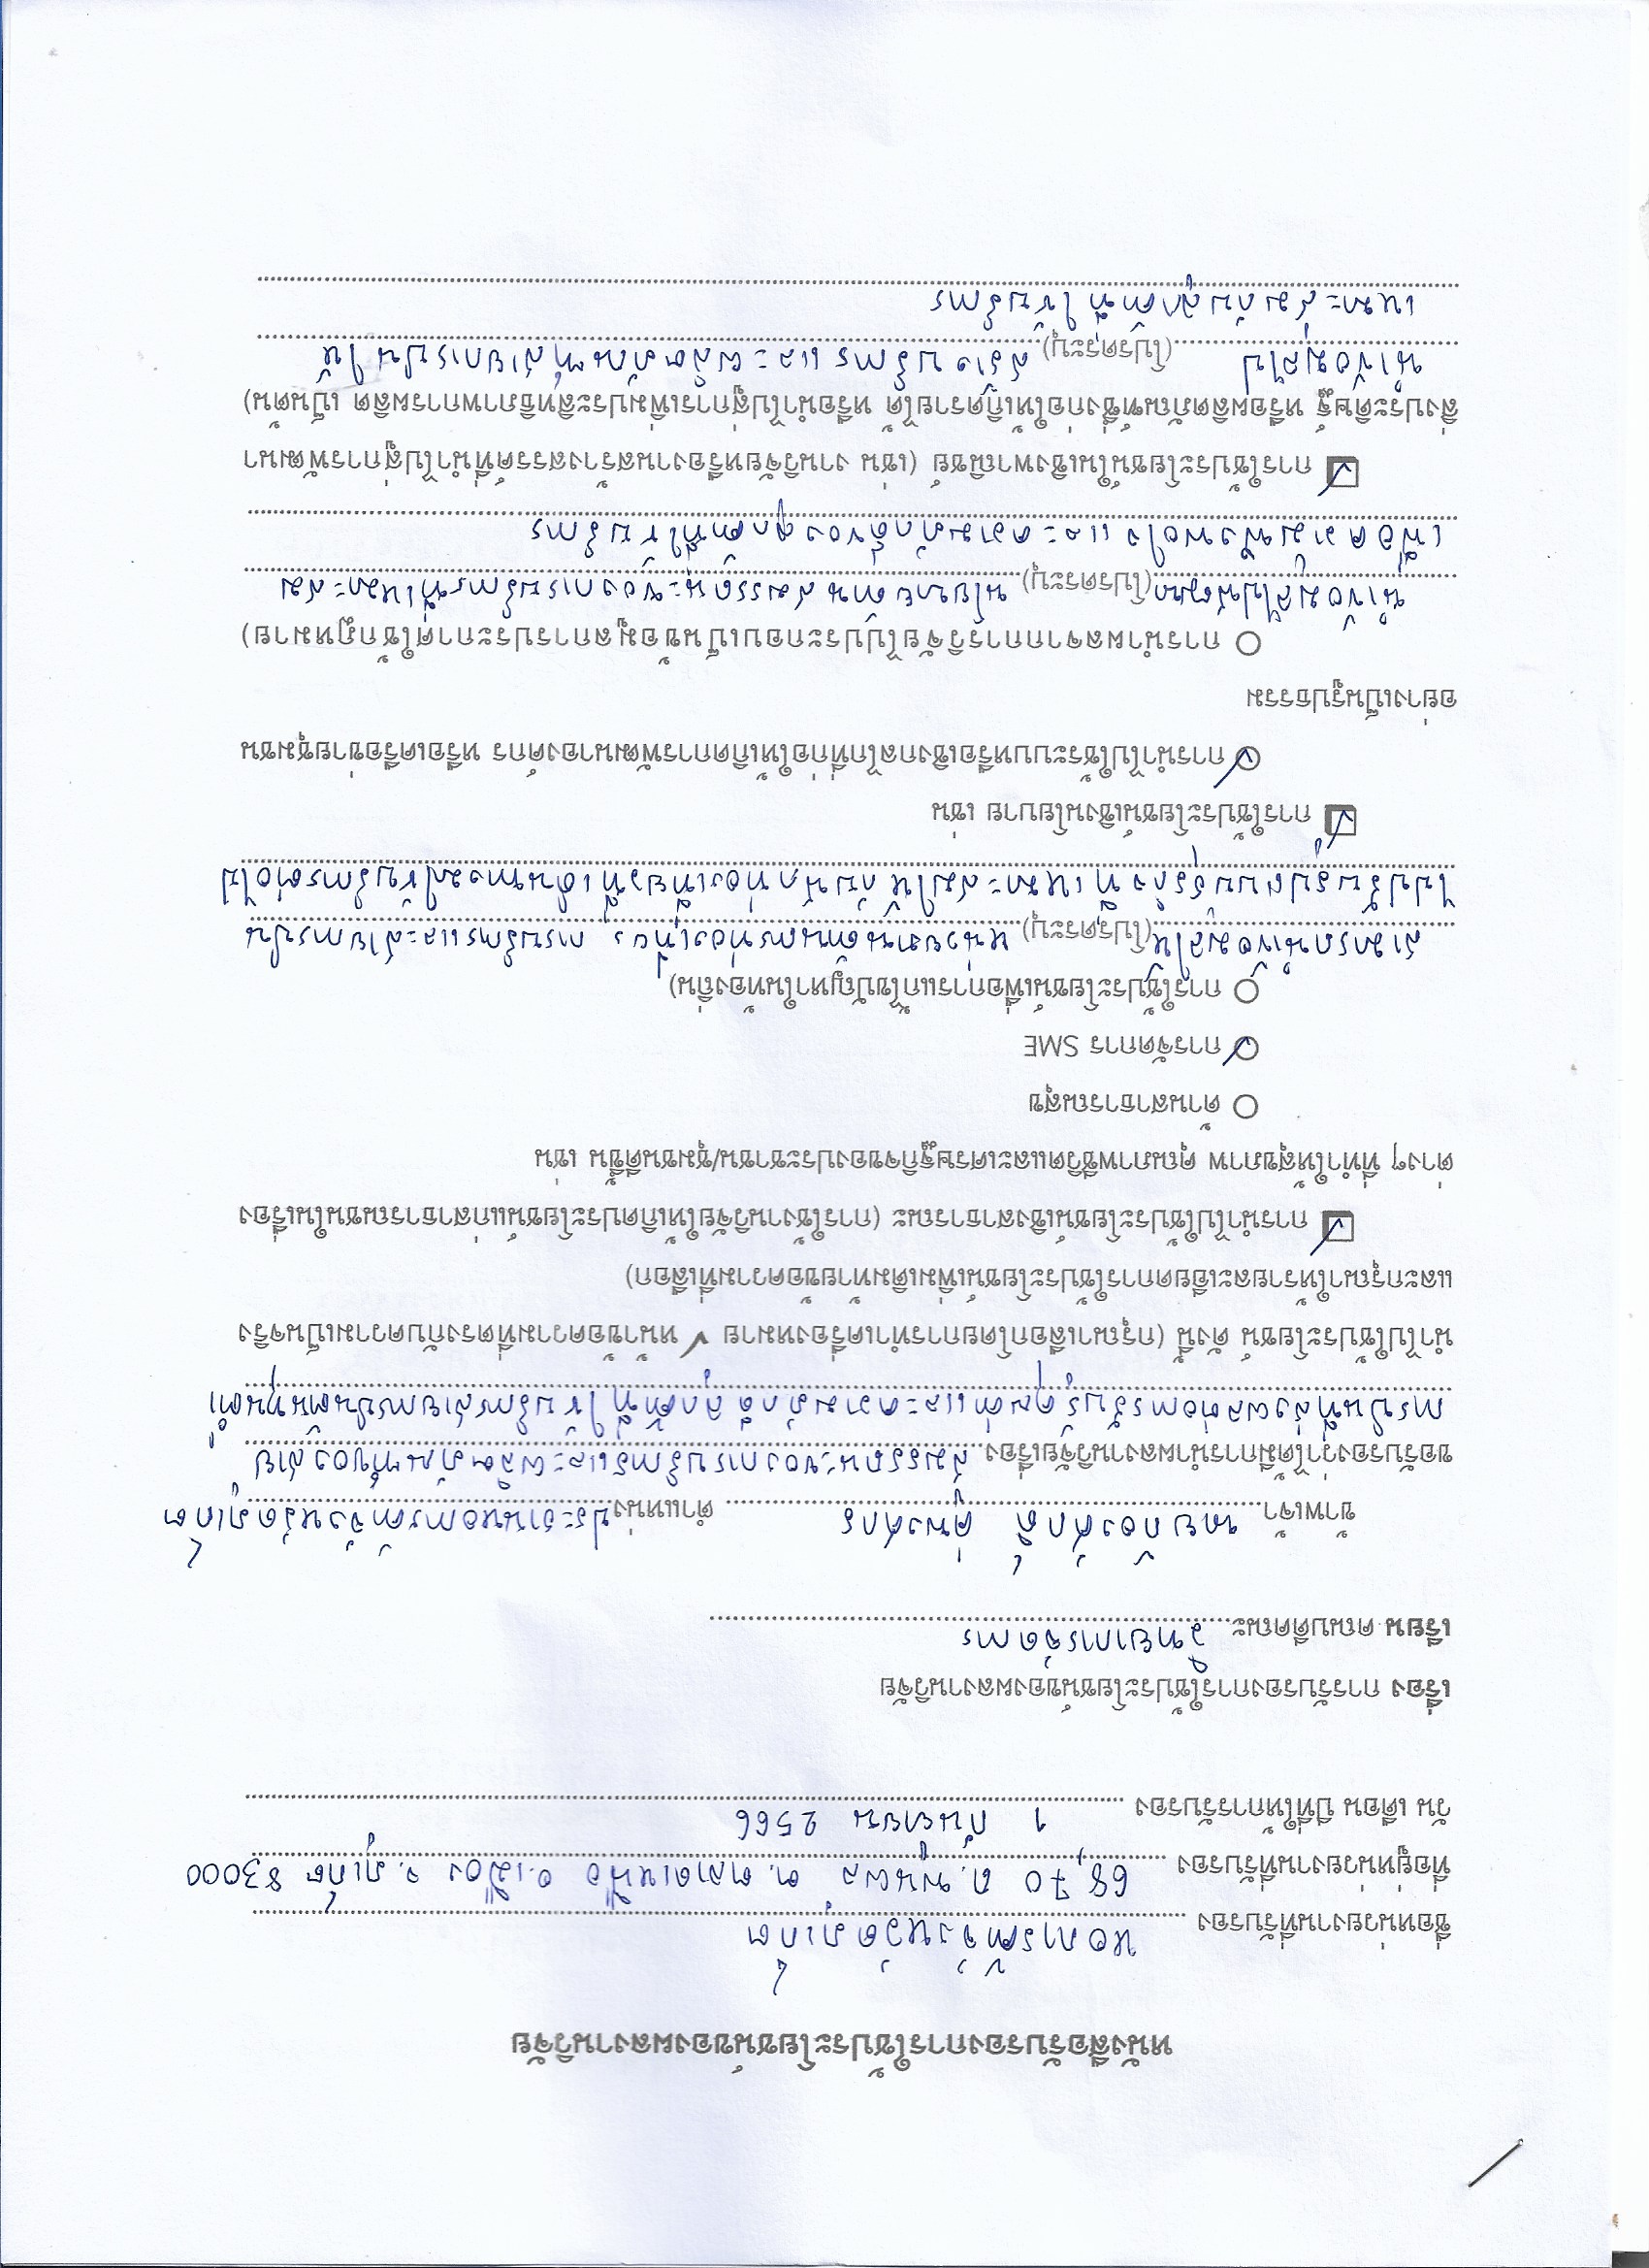 หนังสือรับรองการใช้ประโยชน์ของผลงานวิจัย
ชื่อหน่วยงานที่รับรอง หอการค้าจังหวัดภูเก็ต
ที่อยู่หน่วยงานที่รับรอง 68,70 ถ.พูนผล ต.ตลาดเหนือ อ.เมือง จ.ภูเก็ต 83000
วัน เดือน ปีที่ให้การรับรอง 1 กันยายน 2566
เรื่อง การรับรองการใช้ประโยชน์ของผลงานวิจัย
เรียน คณบดีคณะ วิทยาการจัดการ
ข้าพเจ้า นายก้องศักดิ์ คู่พงศกร ตำแหน่ง ประธานหอการค้าจังหวัดภูเก็ต
ขอรับรองว่าได้มีการนำผลงานวิจัยเรื่อง สมรรถนะของการบริการและผลิตภัณฑ์ของสาย
การบินที่ส่งผลต่อการรับรู้คุณค่าและความภักดีลูกค้าที่ใช้บริการสายการบินต้นทุนต่ำ
นำไปใช้ประโยชน์ ดังนี้ (กรุณาเลือกโดยการทำเครื่องหมาย ✓ หน้าข้อความที่ตรงกับความเป็นจริง
และกรุณาให้รายละเอียดการใช้ประโยชน์เพิ่มเติมท้ายข้อความที่เลือก)
☑ การนำไปใช้ประโยชน์เชิงสาธารณะ (การใช้งานวิจัยให้เกิดประโยชน์แก่สาธารณชนในเรื่อง
ต่างๆ ที่ทำให้สุขภาพ คุณภาพชีวิตและเศรษฐกิจของประชาชน/ชุมชนดีขึ้น เช่น
ด้านสาธารณสุข
การจัดการ SME
การใช้ประโยชน์เพื่อการแก้ไขปัญหาในท้องถิ่น)
สามารถนำข้อมูลให้ (โปรดระบุ) หน่วยงานด้านการท่องเที่ยว การบริการและสายการบิน
ไปปรับรูปแบบธุรกิจที่เหมาะสมให้กับนักท่องเที่ยวที่เดินทางมาใช้บริการต่อไป
☑ การใช้ประโยชน์เชิงนโยบาย เช่น
การนำไปใช้ระบบหรือเชิงกลไกที่ก่อให้เกิดการพัฒนาองค์กร หรือเครือข่ายชุมชน
อย่างเป็นรูปธรรม
การนำผลจากการวิจัยไปประกอบเป็นข้อมูลการประกาศใช้กฎหมาย)
นำข้อมูลไปพัฒนา (โปรดระบุ) นโยบายด้านสมรรถนะของการบริการที่เหมาะสม
เพื่อความพึงพอใจ และความภักดีของลูกค้าที่ใช้บริการ
☑ การใช้ประโยชน์ในเชิงพาณิชย์ (เช่น งานวิจัยหรืองานสร้างสรรค์ที่นำไปสู่การพัฒนา
สิ่งประดิษฐ์ หรือผลิตภัณฑ์ซึ่งก่อให้เกิดรายได้ หรือนำไปสู่การเพิ่มประสิทธิภาพการผลิต เป็นต้น)
นำข้อมูลไป (โปรดระบุ) สร้างบริการ และผลิตภัณฑ์สายการบินให้
เหมาะสมกับลูกค้าที่ใช้บริการ